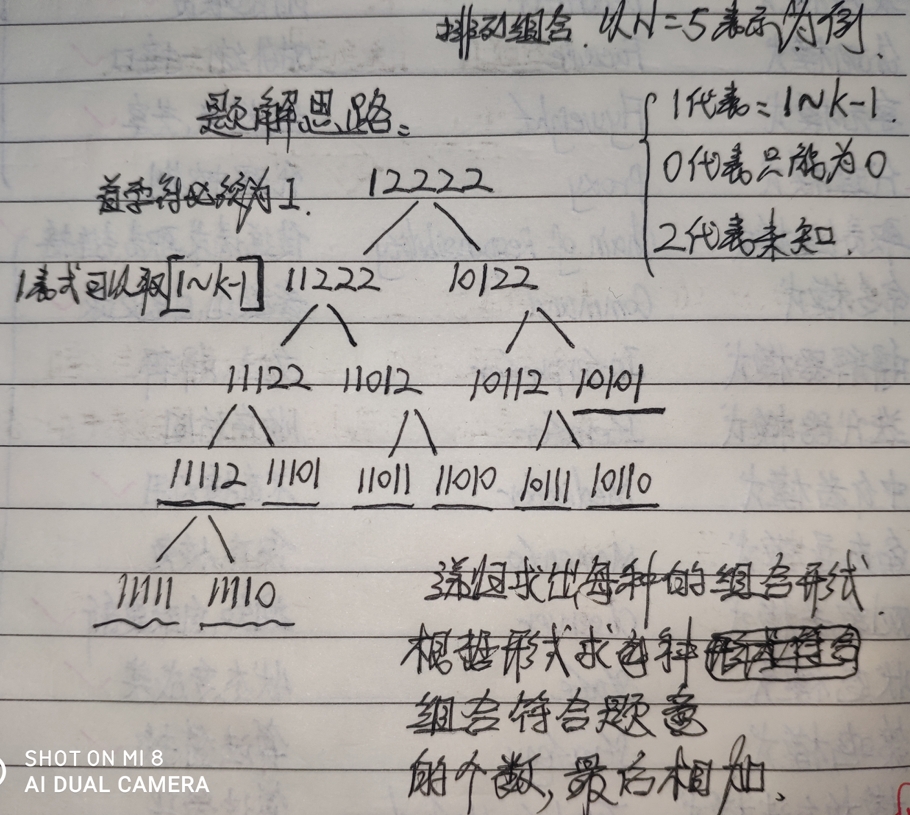 排列组合.以N=5表示为例.
题解思路。
1代表=1~k-1.
0代表只能为0
2代表未知.
首字符必须为1.
12222
1表式可以取[1~k-1]
11222 10122
11122 11012 10112 10101
11112 11101 11011 11010 10111 10110
11111 11110
递归求出每种的组合形式.
根据形式求每种
组合符合题意
的个数,最后相加.
SHOT ON MI 8
AI DUAL CAMERA